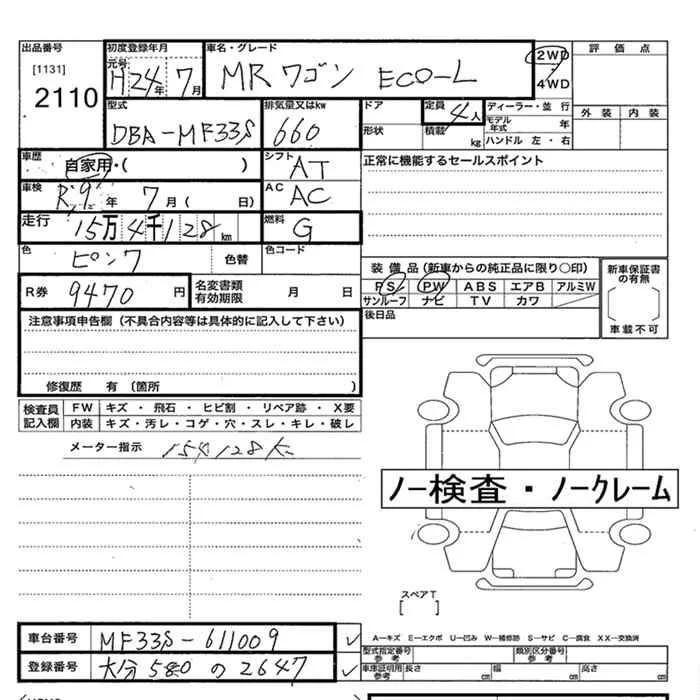 出品番号 初度登録年月 車名・グレード 2WD 評価点
[1131] 元号 H24年 7月 MRワゴン ECO-L 4WD
2110
型式 排気量又はkw ドア 定員 4人 ディーラー・並行 外装 内装
DBA-MF33S 660 形状 積載 kg モデル年式 年
ハンドル 左・右
車歴 自家用・( ) シフト AT 正常に機能するセールスポイント
車検 R9年 7月( 日) AC AC
走行 15万4千128km 燃料 G
色 ピンク 色替 色コード
装備品(新車からの純正品に限り○印) 新車保証書の有無
R券 9470円 名変書類有効期限 月 日 PS PW ABS エアB アルミW
サンルーフ ナビ TV カワ
車載不可
注意事項申告欄(不具合内容等は具体的に記入して下さい) 後日品
修復歴 有(箇所 )
検査員記入欄 FW キズ・飛石・ヒビ割・リペア跡・X要
内装 キズ・汚レ・コゲ・穴・スレ・キレ・破レ
メーター指示 154128K
ノー検査・ノークレーム
スペアT
[ ]
車台番号 MF33S-611009 A-キズ E-エクボ U-凹み W-補修跡 S-サビ C-腐食 XX-交換済
型式指定番号 参考 類別区分番号 参考
登録番号 大分 580 の 2647 車庫証明用 参考 長さ cm 幅 cm 高さ cm